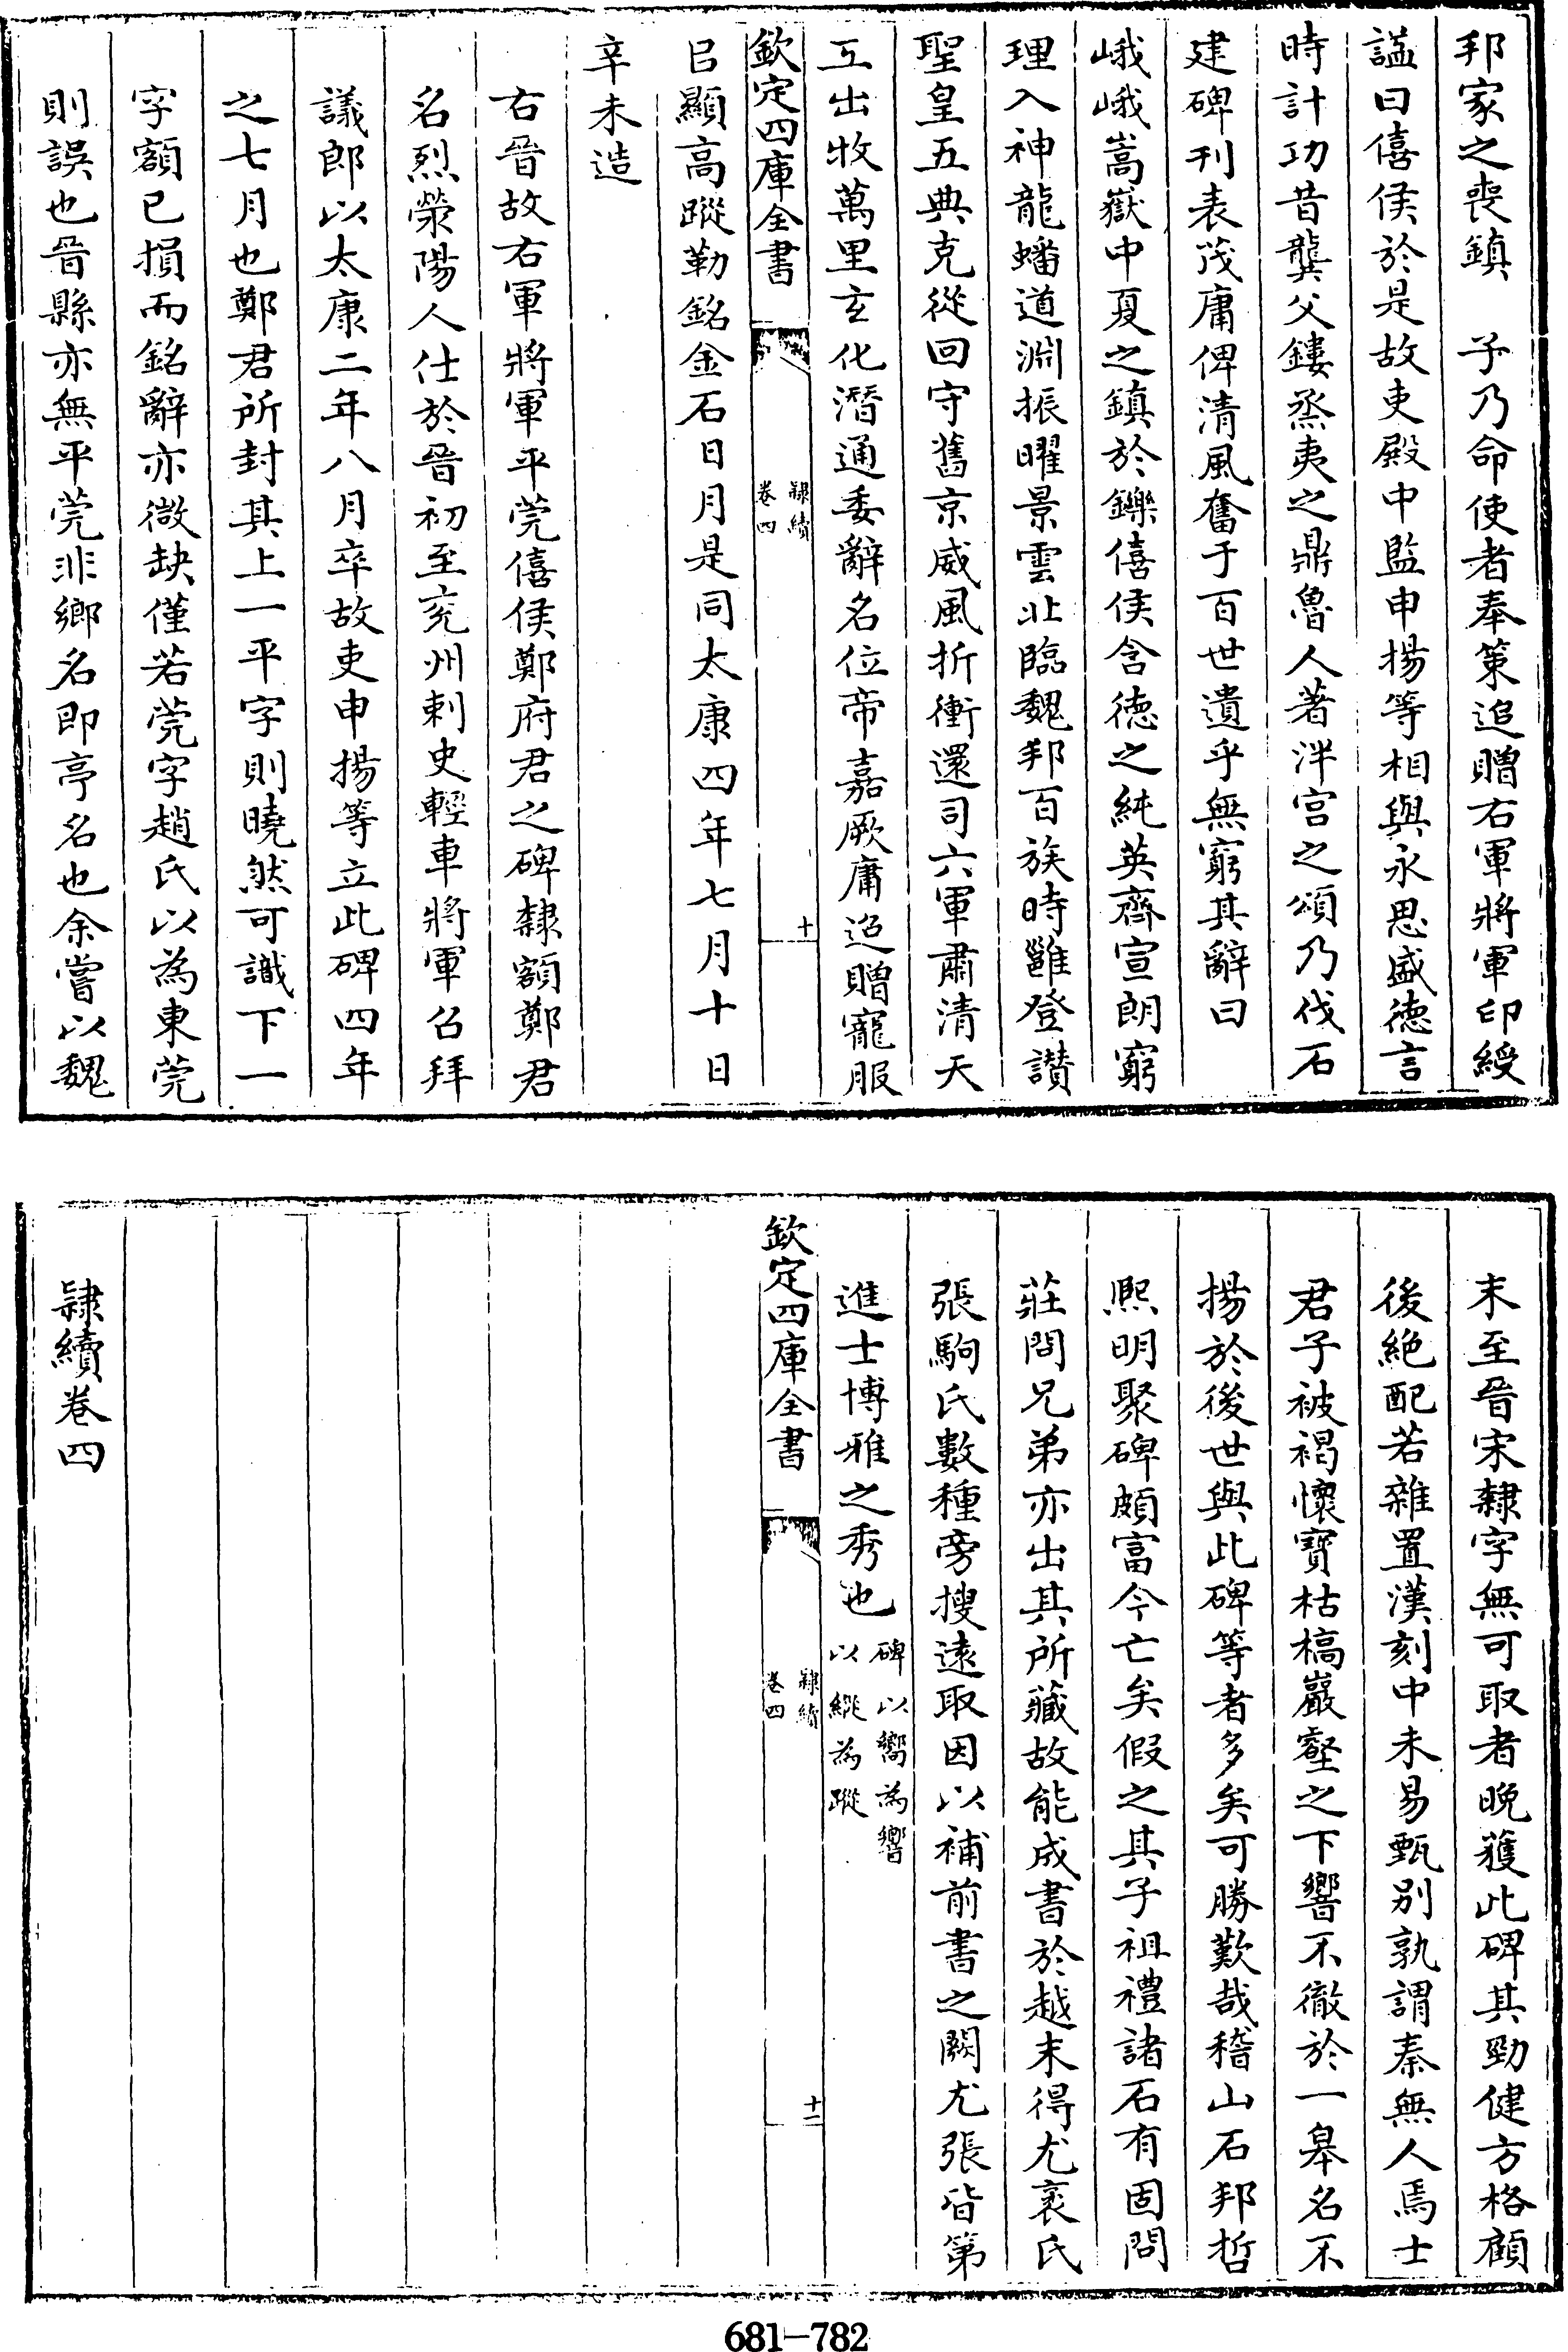 邦家之喪鎮　子乃命使者奉策追贈右軍將軍印綬
謚曰僖侯於是故吏殿中監申揚等相與永思盛德言
時計功昔龔父鏤烝夷之鼎魯人著泮宫之頌乃伐石
建碑刋表茂庸俾清風奮于百世遺乎無窮其辭曰
峨峨嵩嶽中夏之鎮於鑠僖侯含德之純英齊宣朗窮
理入神龍蟠道淵振曜景雲北臨魏邦百族時雝登讃
聖皇五典克從回守舊京威風折衝還司六軍肅清天
工出牧萬里玄化潛通委辭名位帝嘉厥庸追贈寵服
欽定四庫全書
隸續
卷四
十
㠯顯高蹤勒銘金石日月是同太康四年七月十日
辛未造
右晉故右軍將軍平莞僖侯鄭府君之碑隸額鄭君
名烈滎陽人仕於晉初至兖州刺史輕車將軍召拜
議郎以太康二年八月卒故吏申揚等立此碑四年
之七月也鄭君所封其上一平字則曉然可識下一
字額已損而銘辭亦微缺僅若莞字趙氏以為東莞
則誤也晉縣亦無平莞非鄉名即亭名也余嘗以魏
末至晉宋隸字無可取者晚獲此碑其勁健方格顧
後絶配若雜置漢刻中未易甄别孰謂秦無人焉士
君子被褐懷寶枯槁巖壑之下響不徹於一皋名不
揚於後世與此碑等者多矣可勝歎哉稽山石邦哲
熙明聚碑頗富今亡矣假之其子祖禮諸石有固問
莊問兄弟亦出其所藏故能成書於越末得尤袤氏
張駒氏數種旁搜遠取因以補前書之闕尤張皆第
進士博雅之秀也
碑以嚮為響
以縱為蹤
欽定四庫全書
隸續
卷四
十一
隸續卷四
681—782